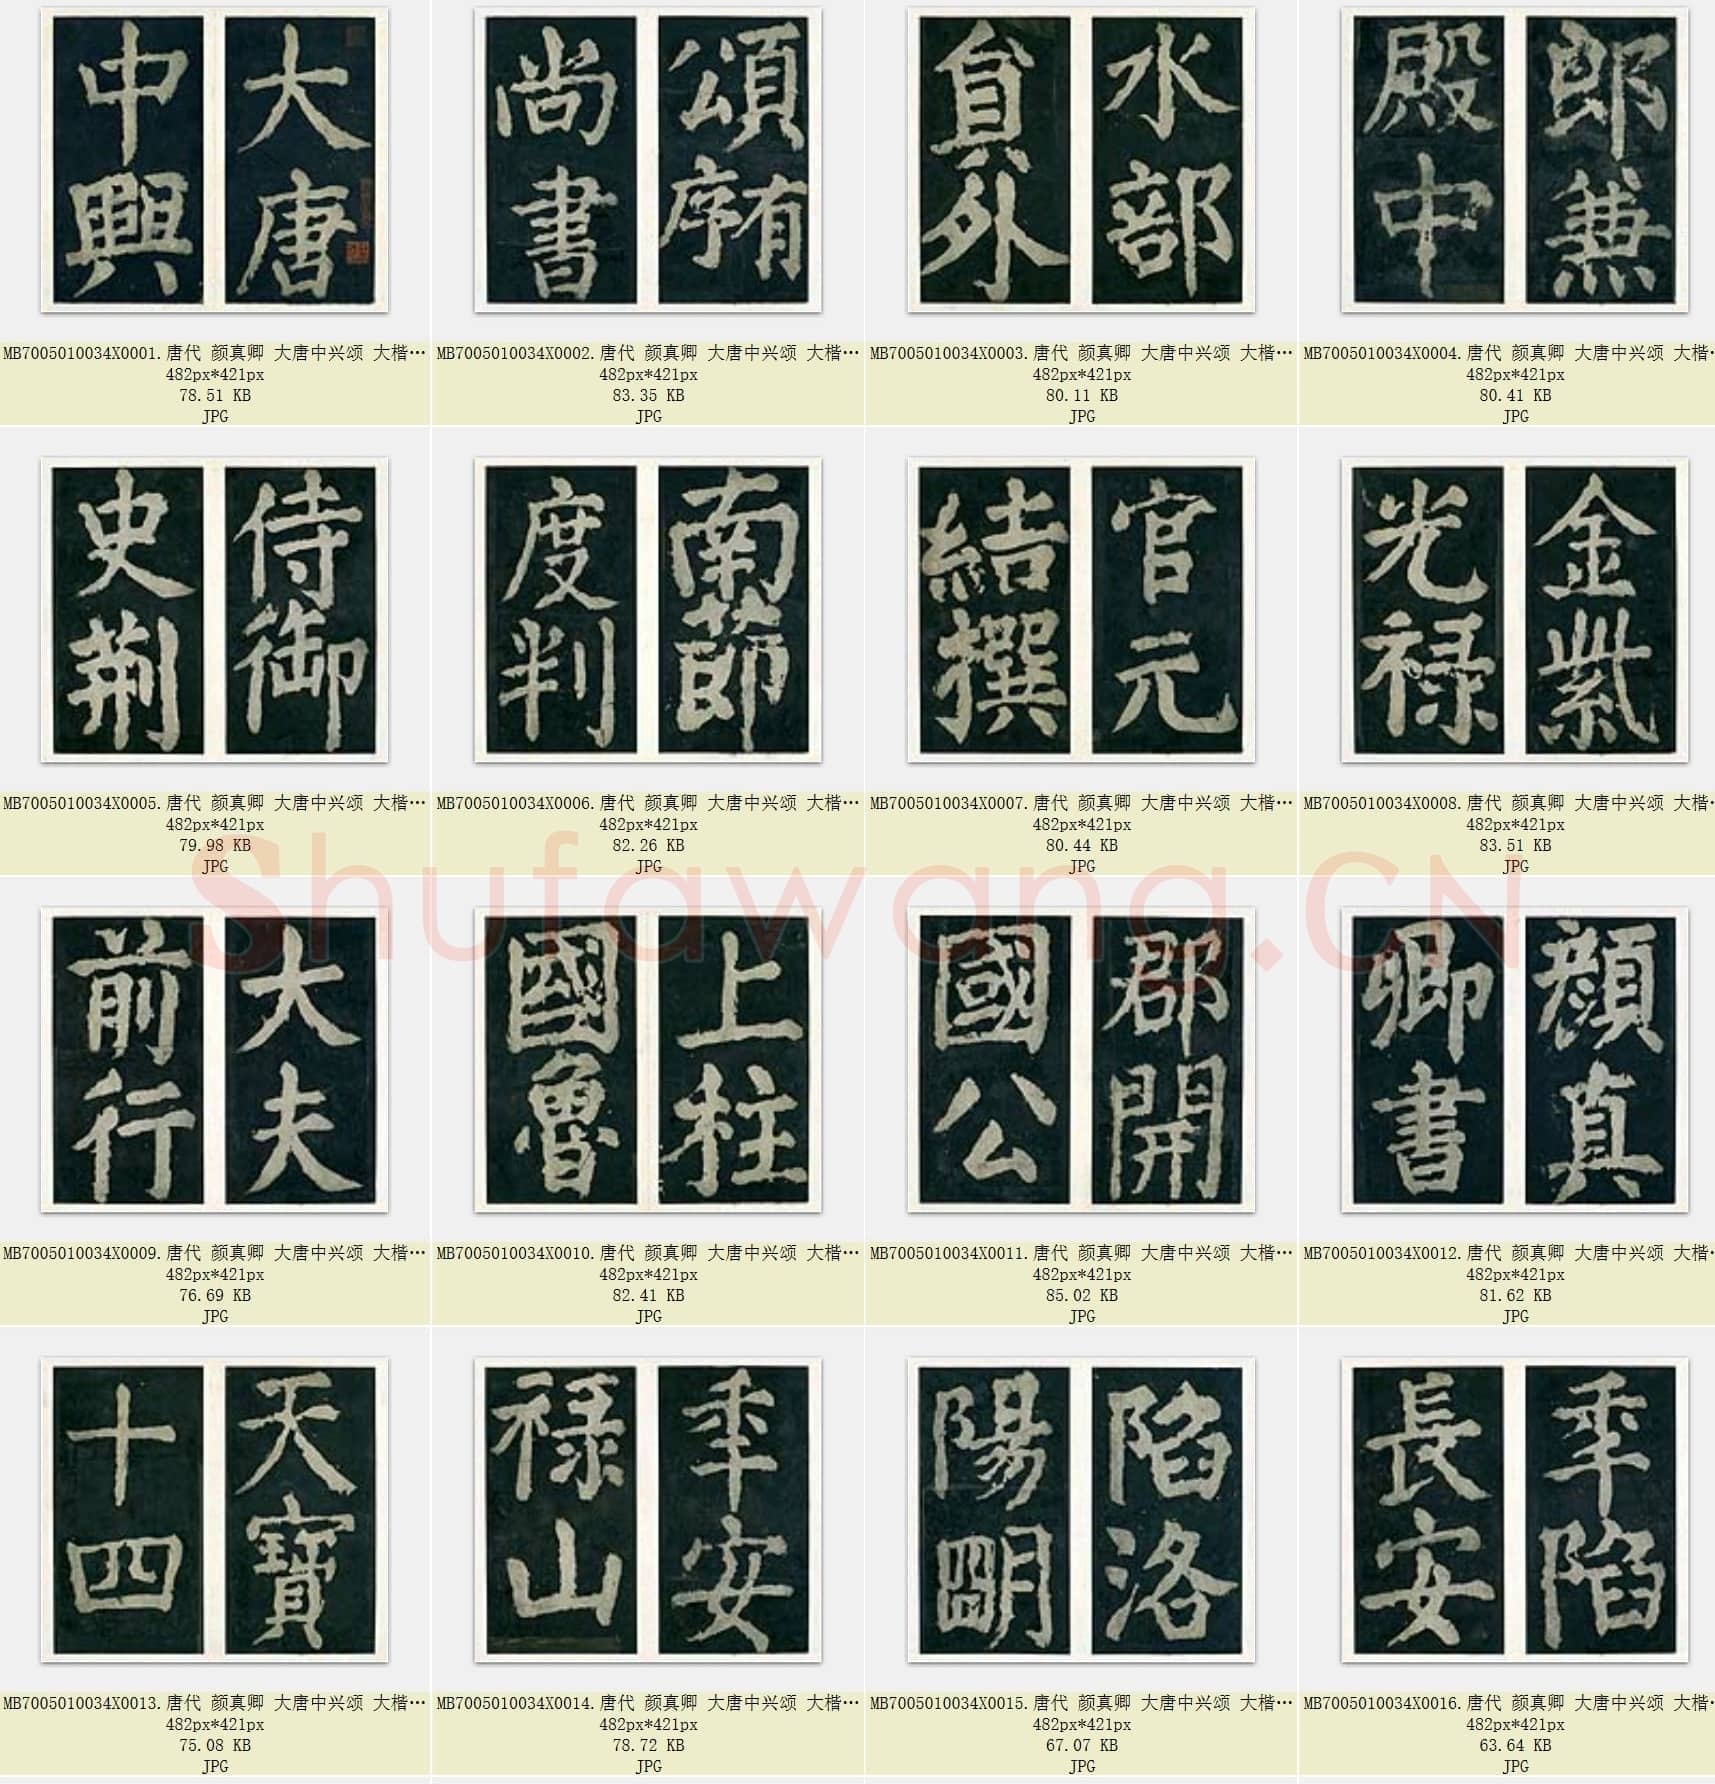 大唐
中興
MB7005010034X0001.唐代 颜真卿 大唐中兴颂 大楷…
482px*421px
78.51 KB
JPG
頌有序
尚書
MB7005010034X0002.唐代 颜真卿 大唐中兴颂 大楷…
482px*421px
83.35 KB
JPG
水部
貟外
MB7005010034X0003.唐代 颜真卿 大唐中兴颂 大楷…
482px*421px
80.11 KB
JPG
郎兼
殿中
MB7005010034X0004.唐代 颜真卿 大唐中兴颂 大楷…
482px*421px
80.41 KB
JPG
侍御
史荆
MB7005010034X0005.唐代 颜真卿 大唐中兴颂 大楷…
482px*421px
79.98 KB
JPG
南莭
度判
MB7005010034X0006.唐代 颜真卿 大唐中兴颂 大楷…
482px*421px
82.26 KB
JPG
官元
結撰
MB7005010034X0007.唐代 颜真卿 大唐中兴颂 大楷…
482px*421px
80.44 KB
JPG
金紫
光禄
MB7005010034X0008.唐代 颜真卿 大唐中兴颂 大楷…
482px*421px
83.51 KB
JPG
大夫
前行
MB7005010034X0009.唐代 颜真卿 大唐中兴颂 大楷…
482px*421px
76.69 KB
JPG
上柱
國魯
MB7005010034X0010.唐代 颜真卿 大唐中兴颂 大楷…
482px*421px
82.41 KB
JPG
郡開
國公
MB7005010034X0011.唐代 颜真卿 大唐中兴颂 大楷…
482px*421px
85.02 KB
JPG
顏真
卿書
MB7005010034X0012.唐代 颜真卿 大唐中兴颂 大楷…
482px*421px
81.62 KB
JPG
天寶
十四
MB7005010034X0013.唐代 颜真卿 大唐中兴颂 大楷…
482px*421px
75.08 KB
JPG
年安
禄山
MB7005010034X0014.唐代 颜真卿 大唐中兴颂 大楷…
482px*421px
78.72 KB
JPG
陷洛
陽明
MB7005010034X0015.唐代 颜真卿 大唐中兴颂 大楷…
482px*421px
67.07 KB
JPG
年陷
長安
MB7005010034X0016.唐代 颜真卿 大唐中兴颂 大楷…
482px*421px
63.64 KB
JPG
Shufawang.CN